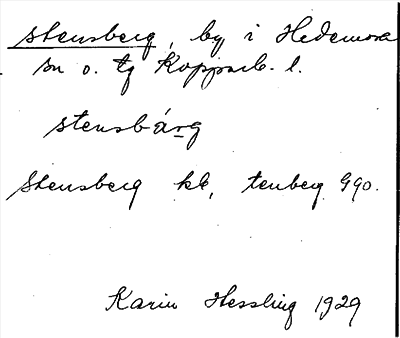 Stensberg, by i Hedemora
sn o. tg Kopparb. l.
stensbárg
Stensberg kb, tenberg 990.
Karin Hessling 1929